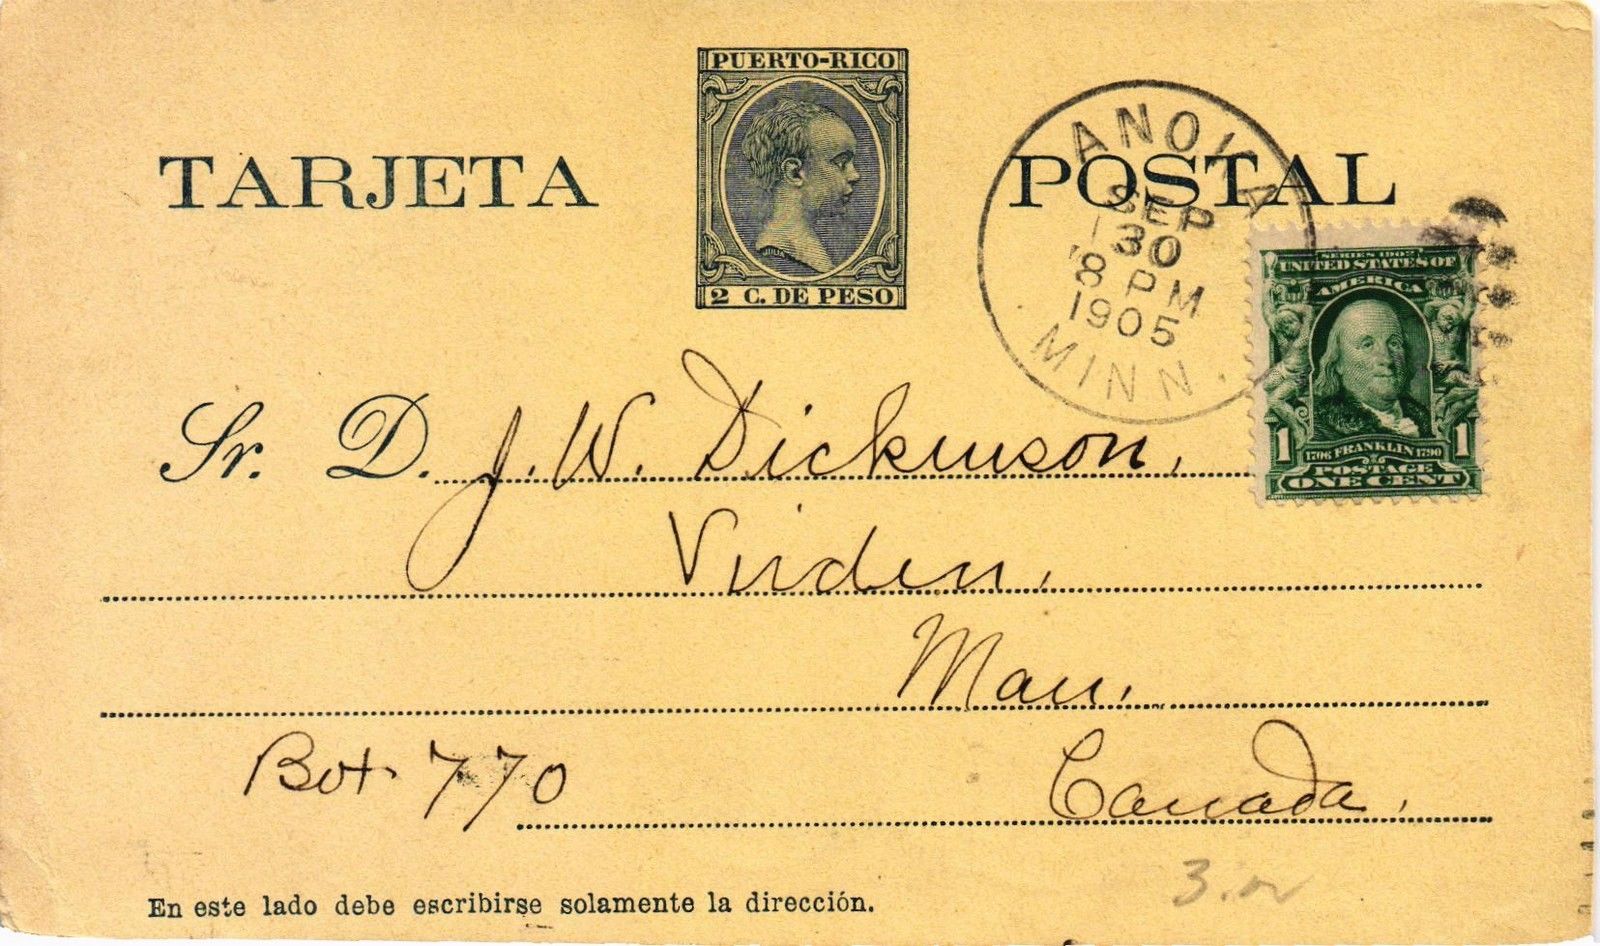 PUERTO-RICO
2 C. DE PESO
TARJETA POSTAL
ANOKA
SEP
30
8 PM
1905
MINN.
SERIES 1902
UNITED STATES OF
AMERICA
1 1706 FRANKLIN 1790 1
POSTAGE
ONE CENT
Sr. D. J. W. Dickinson,
Virden,
Man.
Box 770 Canada.
En este lado debe escribirse solamente la dirección.